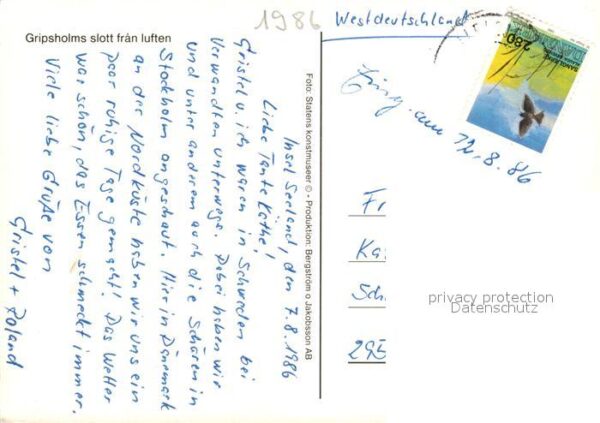 1986
Westdeutschland
Gripsholms slott från luften
Insel Seeland, den 7.8.1986
Liebe Tante Käthe!
Gristel u. ich waren in Schweden bei
Verwandten unterwegs. Dabei haben wir
und unter anderem auch die Schären in
Stockholm angeschaut. Hier in Dänemark
an der Nordküste haben wir uns ein
paar ruhige Tage gemacht! Das Wetter
war schön, das Essen schmeckt immer.
Viele liebe Grüße von
Gristel + Roland
Foto: Statens konstmuseer © - Produktion: Bergström o Jakobsson AB
2.80
DANMARK
am 12.8.86
Fr
Kä
Sch
295
privacy protection
Datenschutz